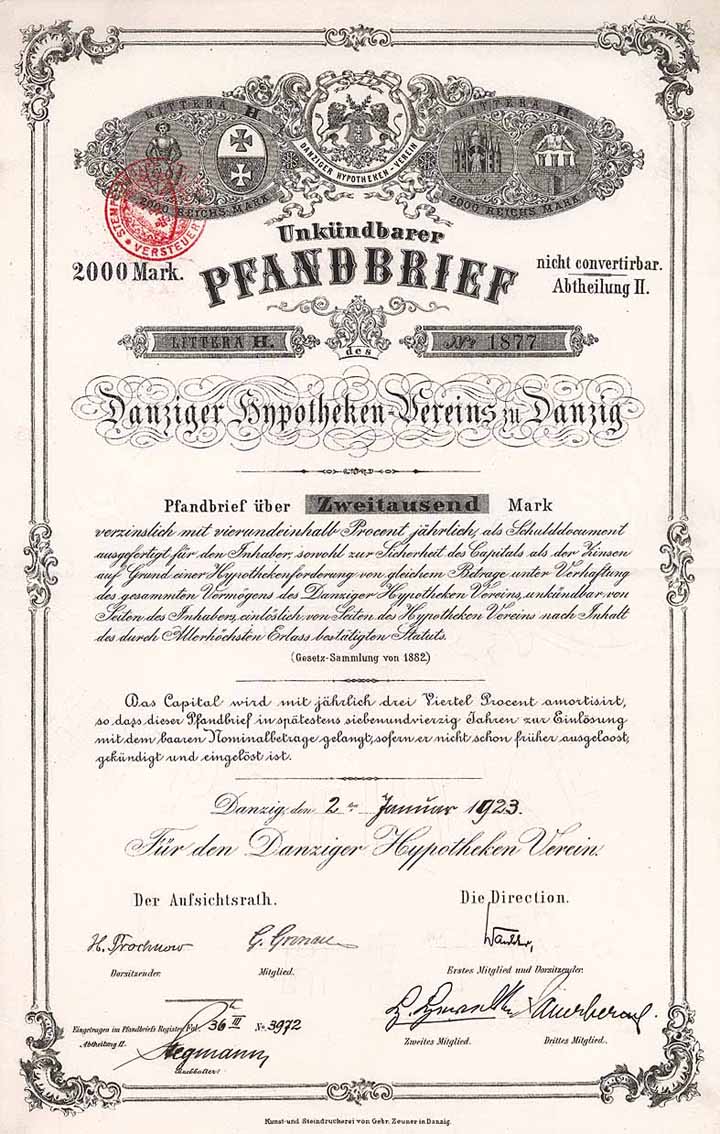 LITTERA H
LITTERA H.
DANZIGER HYPOTHEKEN-VEREIN
2000 REICHS MARK
2000 REICHS MARK
VERSTEUER
Unkündbarer
2000 Mark.
PFANDBRIEF
nicht convertirbar.
Abtheilung II.
LITTERA H.
des
No 1877
Danziger Hypotheken-Vereins zu Danzig
Pfandbrief über Zweitausend Mark
verzinslich mit vierundeinhalb Procent jährlich, als Schulddocument
ausgefertigt für den Inhaber, sowohl zur Sicherheit des Capitals als der Zinsen
auf Grund einer Hypothekenforderung von gleichem Betrage unter Verhaftung
des gesammten Vermögens des Danziger Hypotheken Vereins, unkündbar von
Seiten des Inhabers, einlöslich von Seiten des Hypotheken Vereins nach Inhalt
des durch Allerhöchsten Erlass bestätigten Statuts.
(Gesetz-Sammlung von 1882.)
Das Capital wird mit jährlich drei Viertel Procent amortisirt,
so dass dieser Pfandbrief in spätestens siebenundvierzig Jahren zur Einlösung
mit dem baaren Nominalbetrage gelangt, sofern er nicht schon früher ausgeloost,
gekündigt und eingelöst ist.
Danzig, den 2ten Januar 1923.
Für den Danziger Hypotheken Verein.
Der Aufsichtsrath.
Die Direction.
H. Prochnow
G. Gronau
Vorsitzender.
Mitglied.
Erstes Mitglied und Vorsitzender.
Eingetragen im Pfandbriefs Register Fol. 36 III No. 3972
Abtheilung II.
Stegmann
Buchhalter.
Zweites Mitglied.
Drittes Mitglied.
Kunst-und Steindruckerei von Gebr. Zeuner in Danzig.